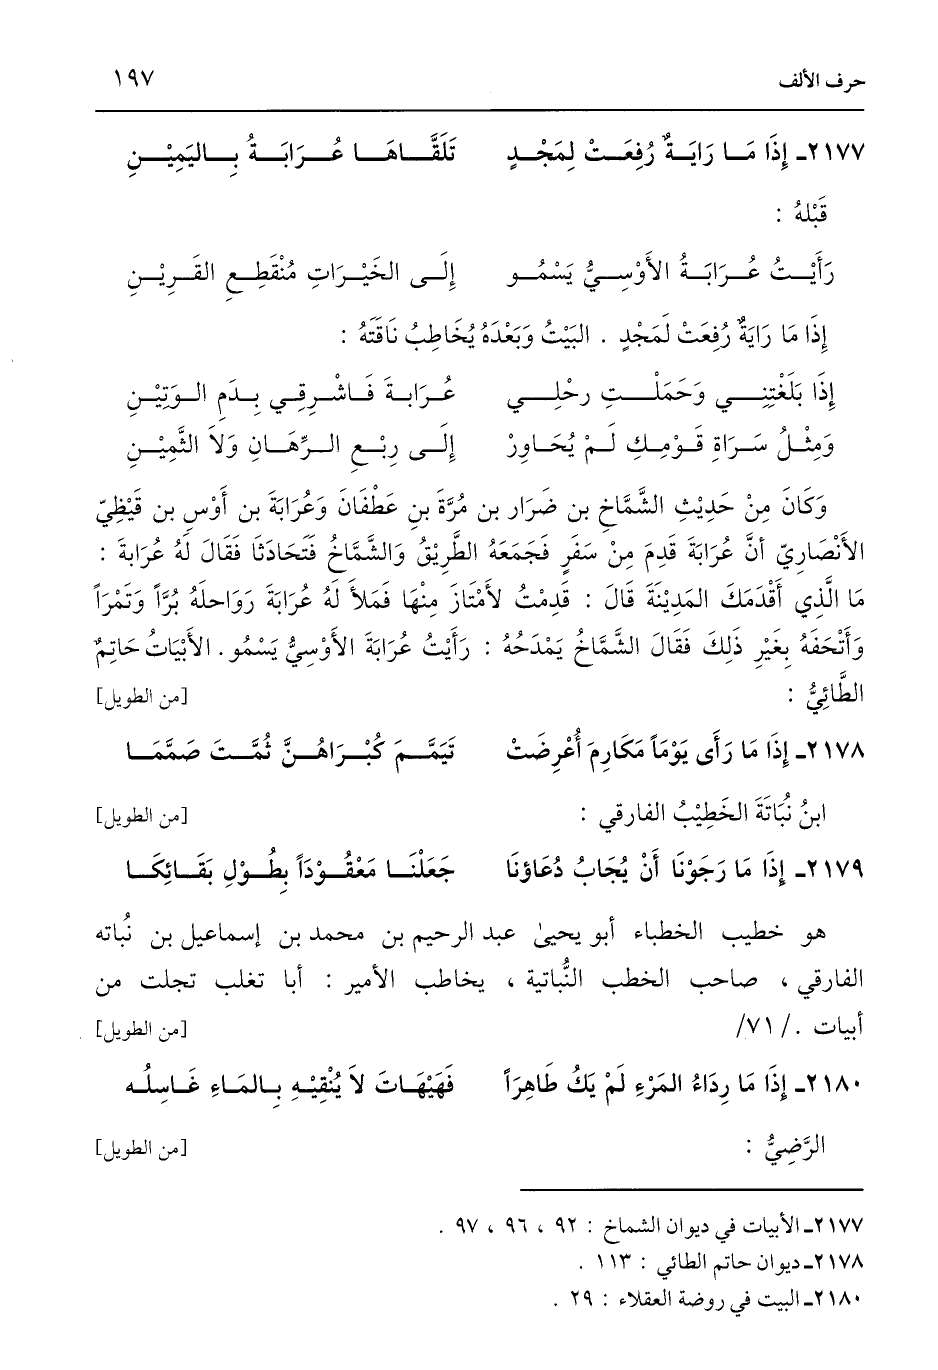 حرف الألف ١٩٧
٢١٧٧ـ إِذَا مَا رَايَةٌ رُفِعَتْ لِمَجْدٍ تَلَقَّاهَا عُرَابَةُ بِاليَمِيْنِ
قَبْلهُ :
رَأَيْتُ عُرَابَةُ الأَوْسِيُّ يَسْمُو إِلَى الخَيْرَاتِ مُنْقَطِعِ القَرِيْنِ
إِذَا مَا رَايَةٌ رُفِعَتْ لَمَجْدٍ . البَيْتُ وَبَعْدَهُ يُخَاطِبُ نَاقَتَهُ :
إِذَا بَلَغْتِنِي وَحَمَلْتِ رحْلِي عُرَابةَ فَاشْرِقِي بِدَمِ الوَتِيْنِ
وَمِثْلُ سَرَاةِ قَوْمِكِ لَمْ يُحَاورْ إِلَى رِبْعِ الرِّهَانِ وَلاَ الثَّمِيْنِ
وَكَانَ مِنْ حَدِيْثِ الشَّمَّاخِ بن ضَرَار بن مُرَّةَ بنِ عَطْفَانَ وَعُرَابَةَ بن أَوْسِ بن قَيْظِيّ
الأَنْصَارِيّ أنَّ عُرَابَةَ قَدِمَ مِنْ سَفَرٍ فَجَمَعَهُ الطَّرِيْقُ وَالشَّمَّاخُ فَتَحَادَثَا فَقَالَ لَهُ عُرَابةَ :
مَا الَّذِي أَقْدَمَكَ المَدِيْنَةَ قَالَ : قَدِمْتُ لأَمْتَازَ مِنْهَا فَمَلأَ لَهُ عُرَابَةَ رَوَاحلَهُ بُرَّاً وَتَمْرَاً
وَأَتْحَفَهُ بِغَيْرِ ذَلِكَ فَقَالَ الشَّمَّاخُ يَمْدَحُهُ : رَأَيْتُ عُرَابَةَ الأَوْسِيُّ يَسْمُو. الأَبْيَاتُ حَاتِمٌ
الطَّائِيُّ : [من الطويل]
٢١٧٨ـ إِذَا مَا رَأَى يَوْمَاً مَكَارِمَ أُعْرِضَتْ تَيَمَّمَ كُبْرَاهُنَّ ثُمَّتَ صَمَّمَا
ابنُ نُبَاتَةَ الخَطِيْبُ الفارقي : [من الطويل]
٢١٧٩ـ إِذَا مَا رَجَوْنَا أَنْ يُجَابُ دُعَاؤنَا جَعَلْنَا مَعْقُوْداً بِطُوْلِ بَقَائِكَا
هو خطيب الخطباء أبو يحيىٰ عبد الرحيم بن محمد بن إسماعيل بن نُباته
الفارقي ، صاحب الخطب النُّباتية ، يخاطب الأمير : أبا تغلب تجلت من
أبيات . /٧١/ [من الطويل]
٢١٨٠ـ إِذَا مَا رِدَاءُ المَرْءِ لَمْ يَكُ طَاهِرَاً فَهَيْهَاتَ لاَ يُنْقِيْهِ بِالمَاءِ غَاسِلُه
الرَّضِيُّ : [من الطويل]
٢١٧٧ـ الأبيات في ديوان الشماخ : ٩٢ ، ٩٦ ، ٩٧ .
٢١٧٨ـ ديوان حاتم الطائي : ١١٣ .
٢١٨٠ـ البيت في روضة العقلاء : ٢٩ .